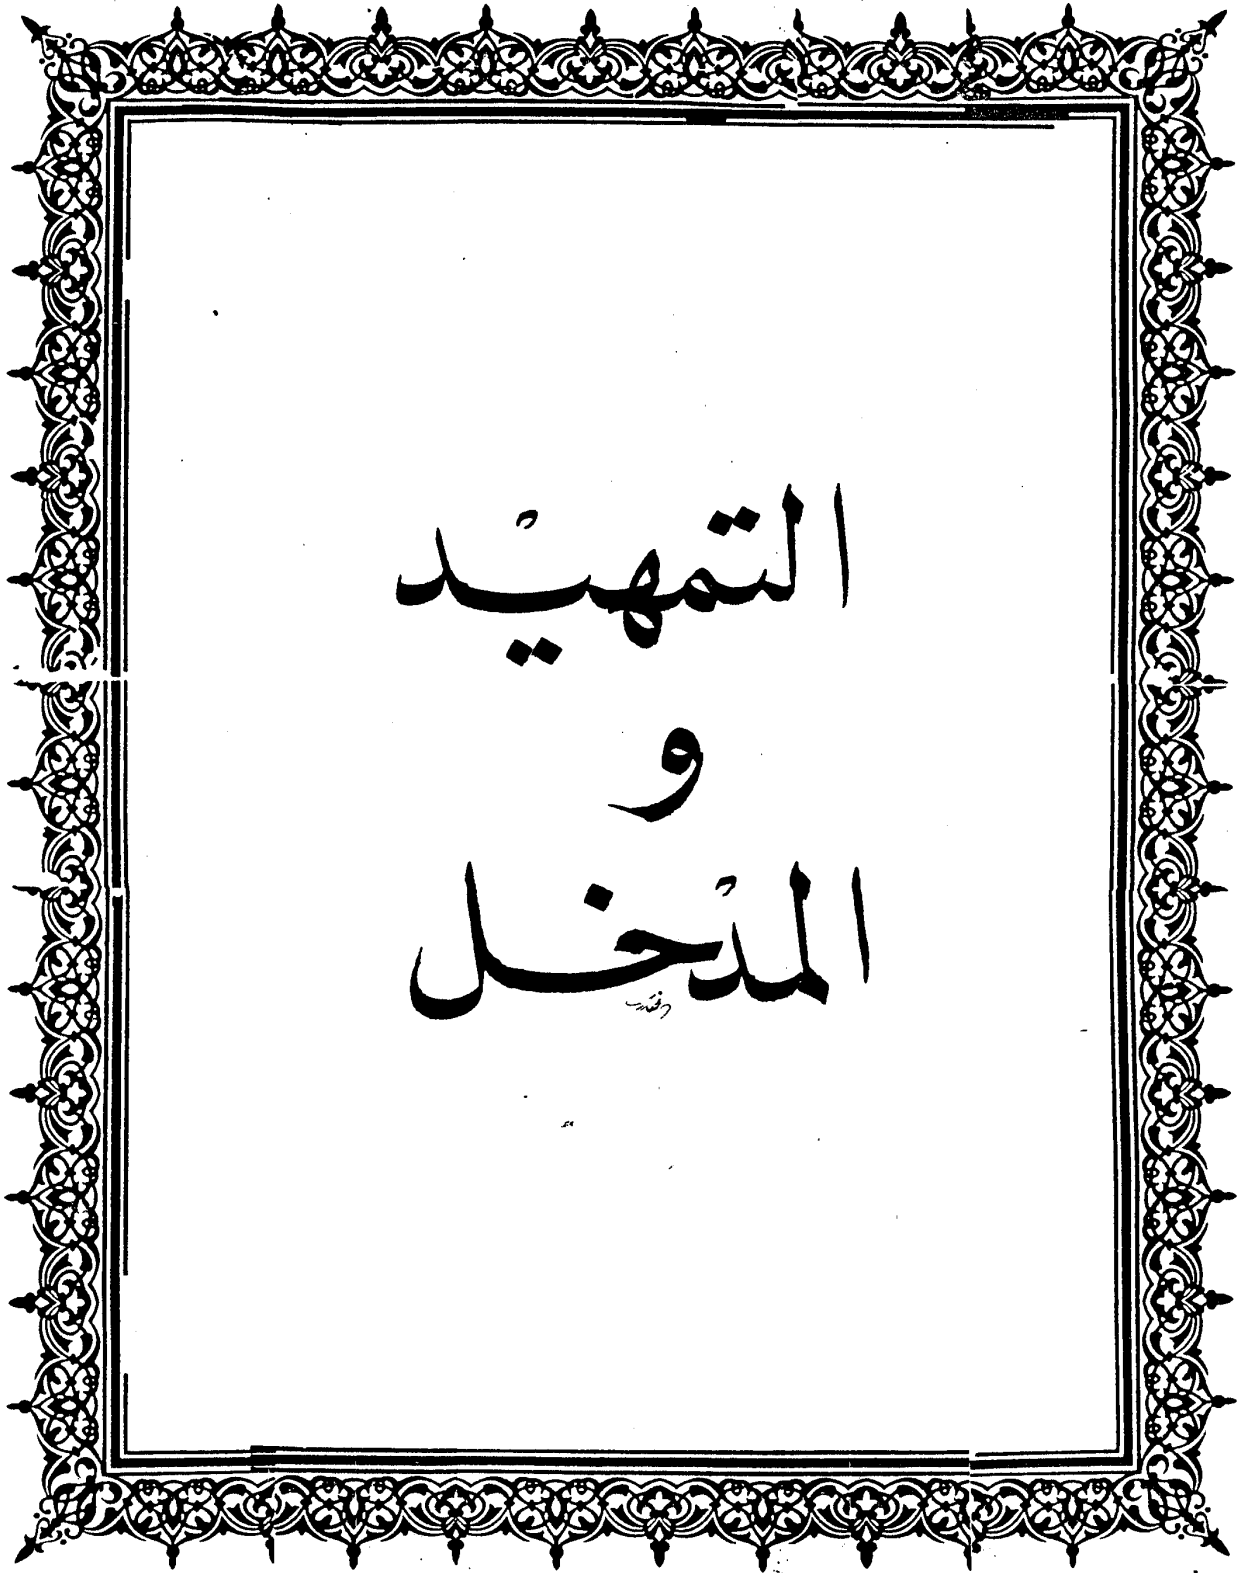 التمهيد
و
المدخل